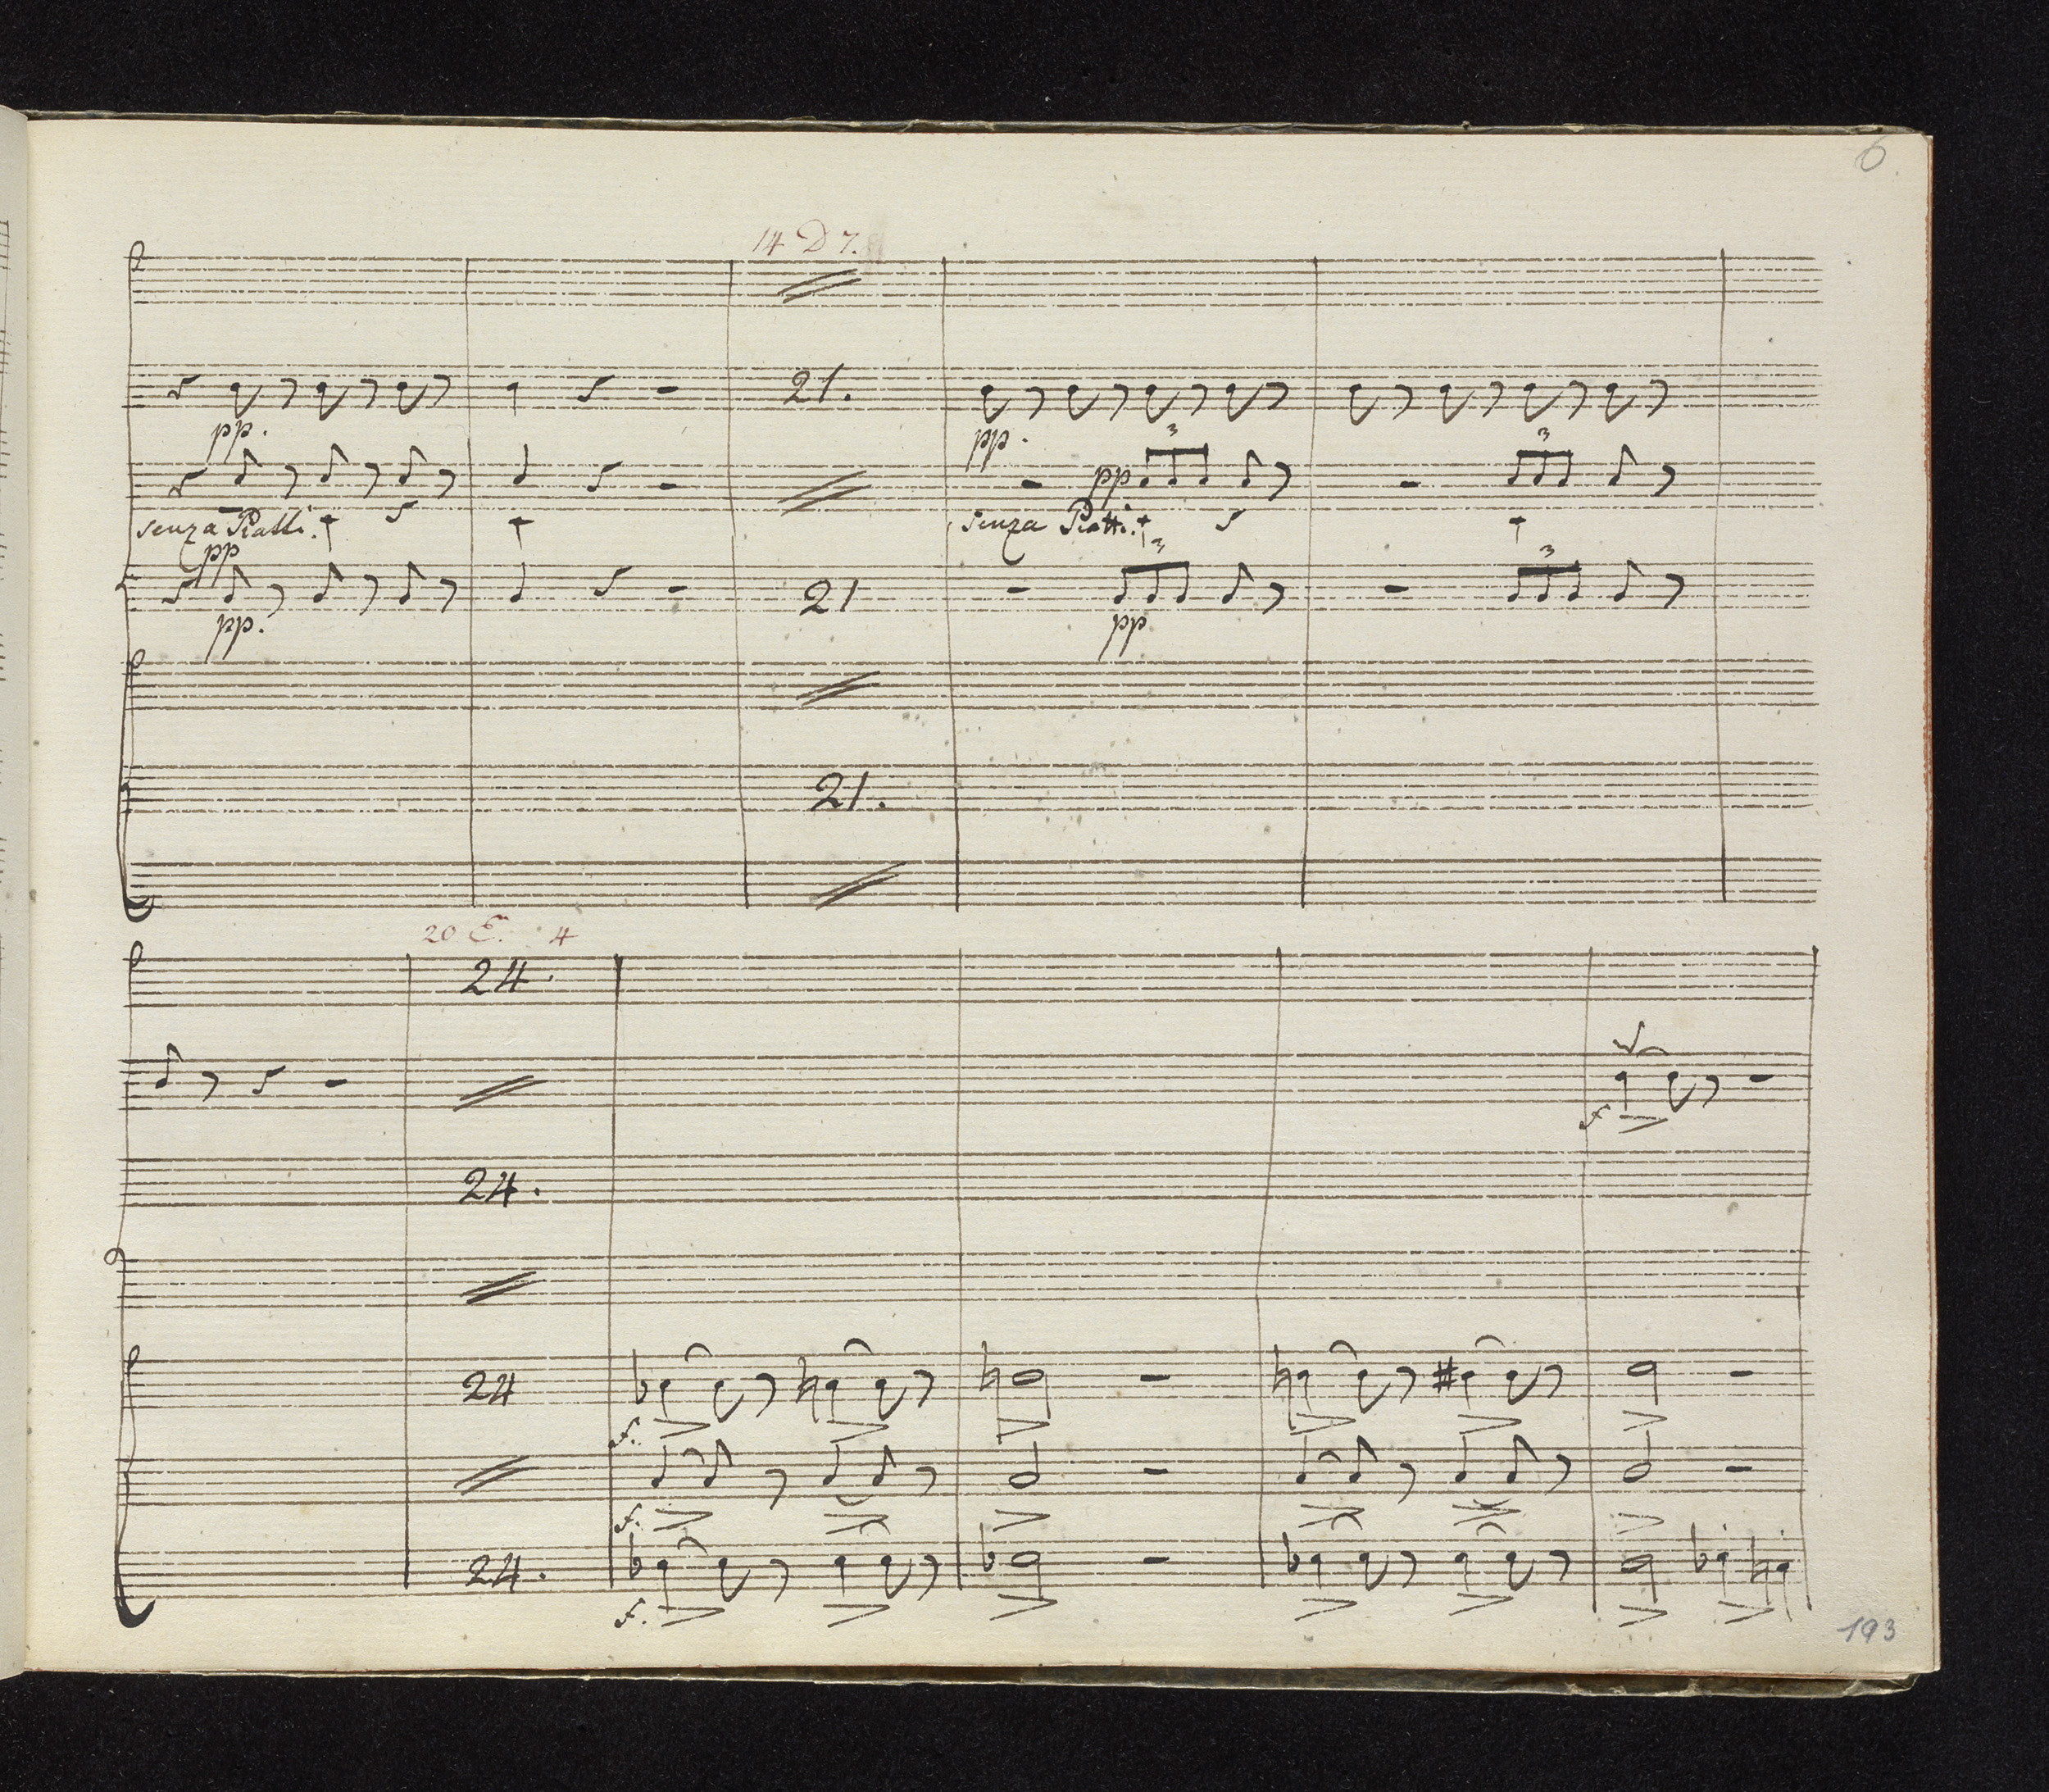 6.
14 D 7.
21.
pp.
pp.
3
pp
3
senza Piatti.
senza Piatti.
pp
3
3
21
pp.
pp
21.
20 E. 4
24.
f
24.
24
f.
f.
24.
f.
193